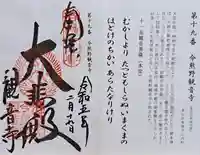 第十九番 今熊野観音寺
十一面観世音菩薩(本尊)
むかしより たつともしらぬ いまくまの
ほとけのちかい あらたなりけり
第十九番 今熊野観音寺
奉拝
大悲殿
観音寺
令和五年
二月